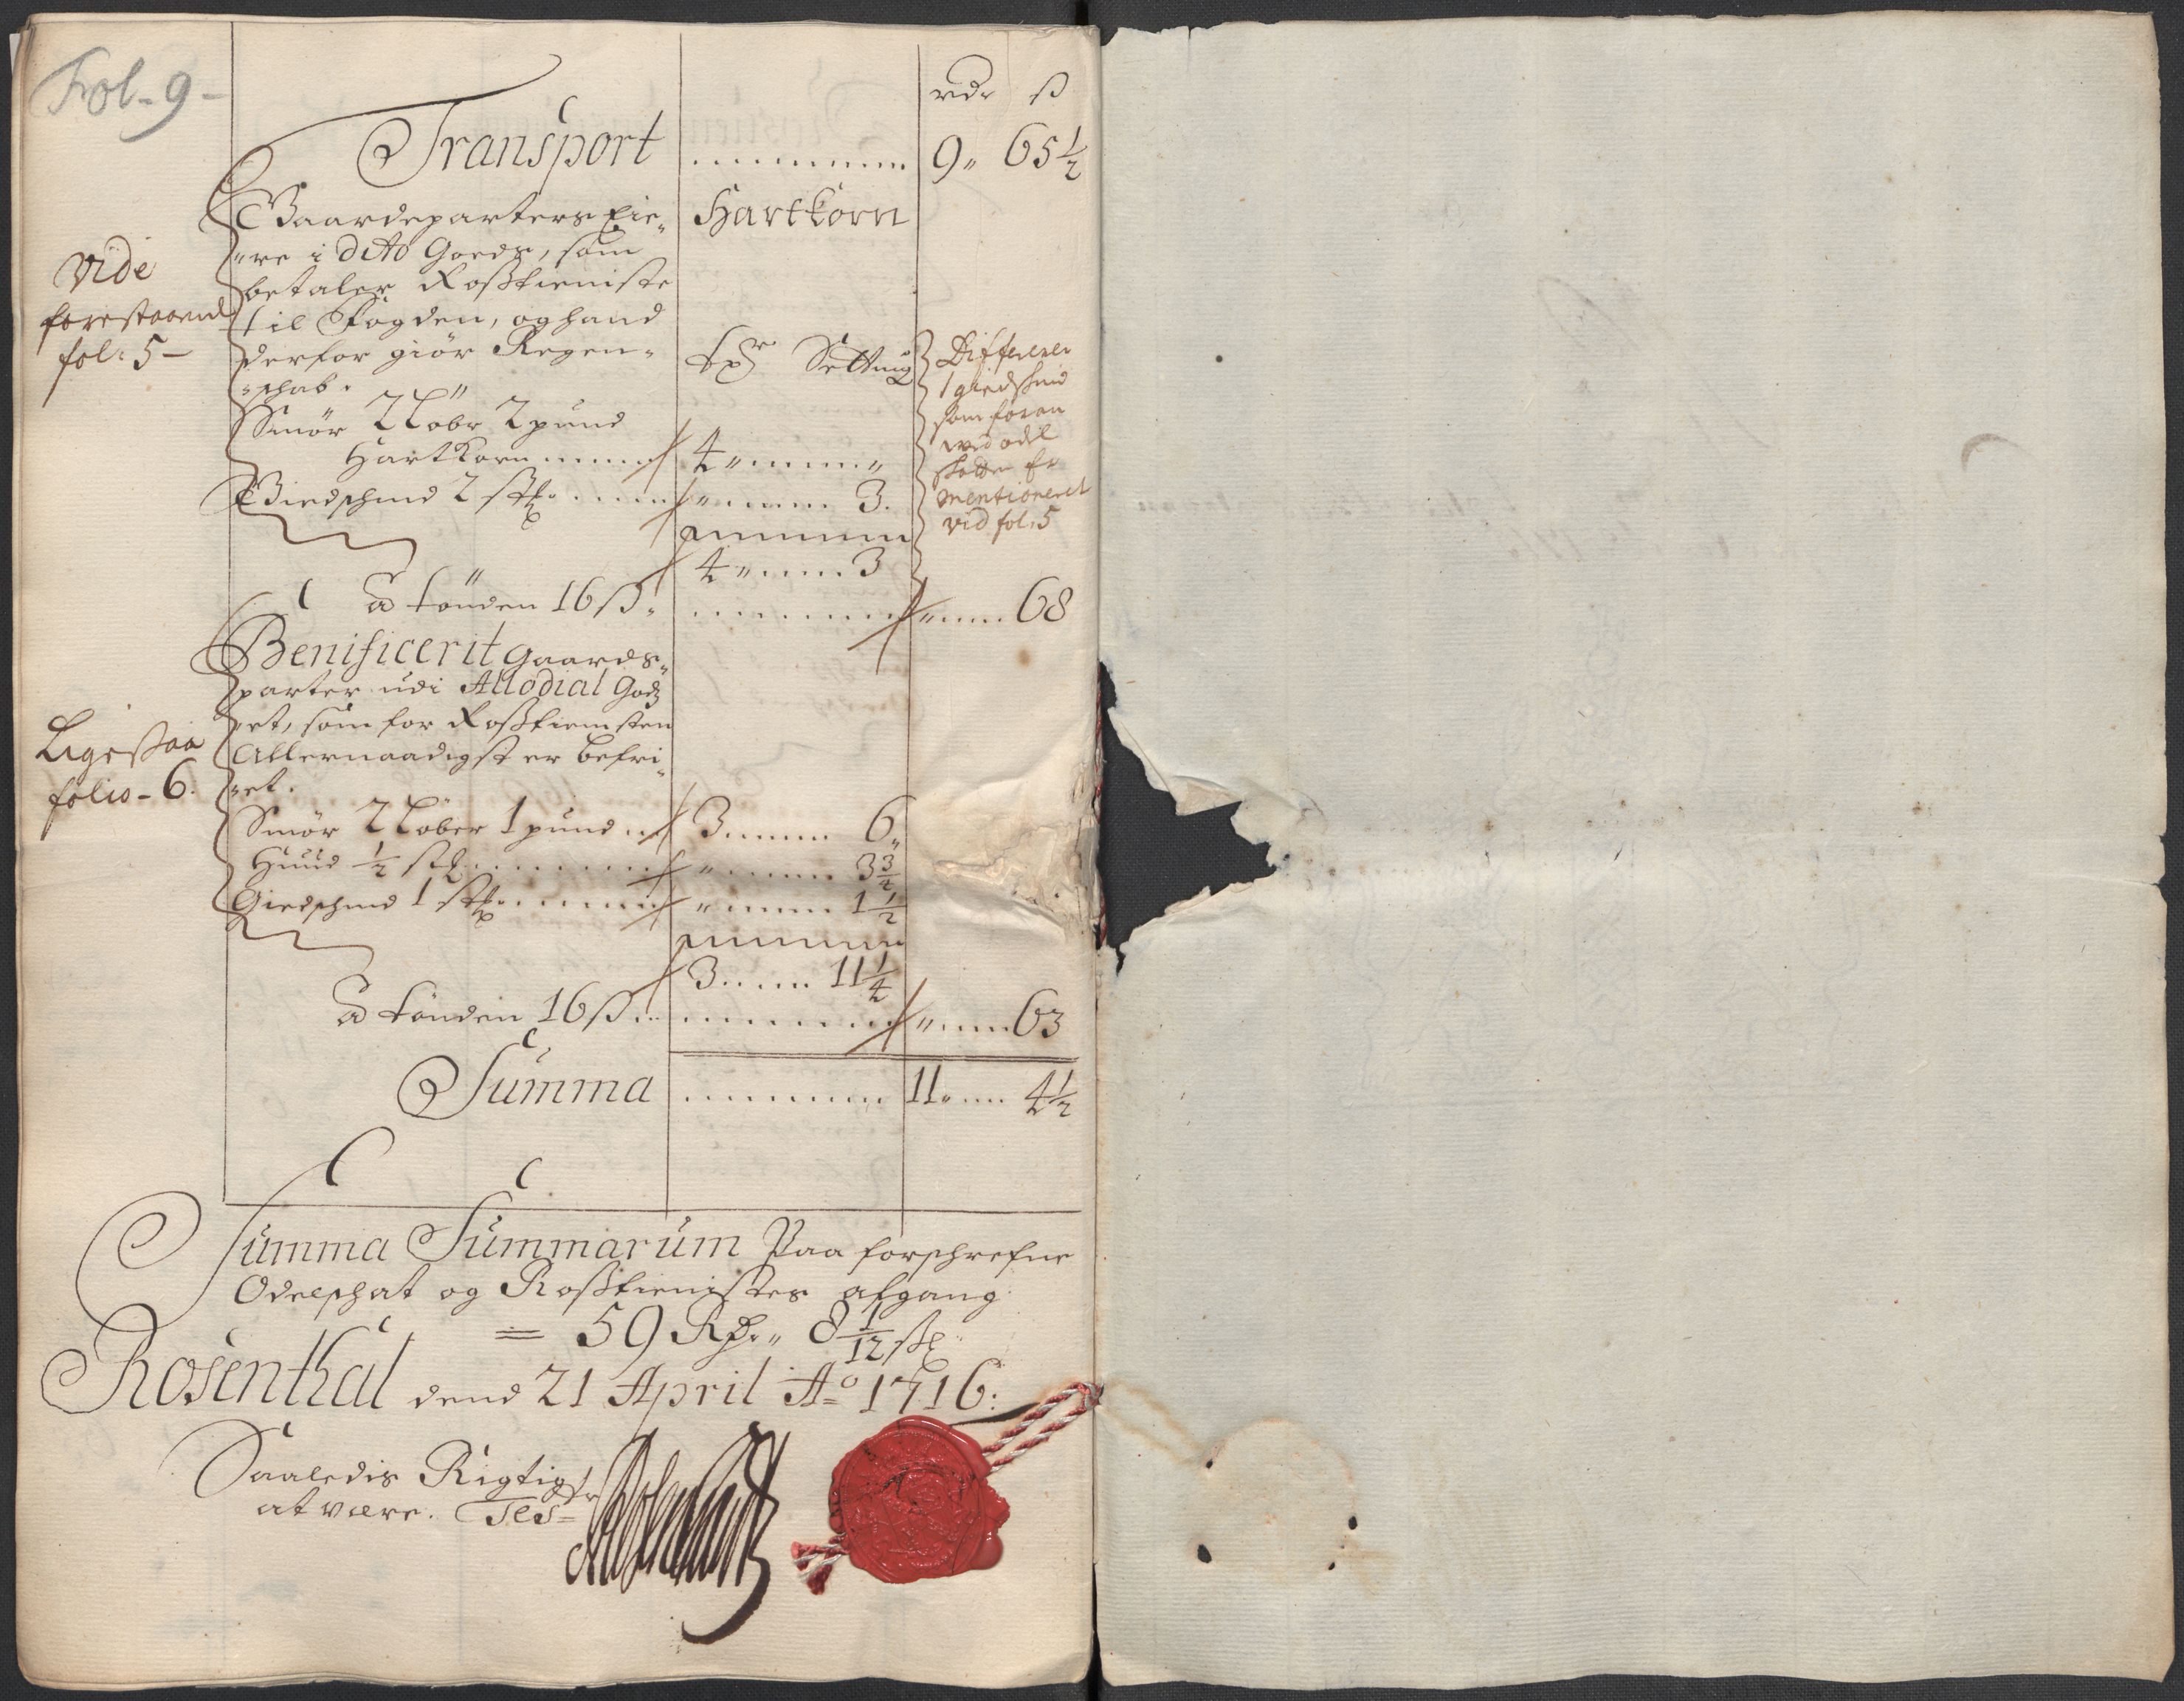 Fol. 9 -
rdr ß
Transport ........ 9„ 65 1/2
Gaardeparters Eie„ Hartkorn
„re i dito Goeds, som
betaler Rosstieniste
til Fogden, og hand
derfor giör Regen„
„schab.
Vide
forestaaende
fol: 5 –
Setting
Smör 2 Löbr 2 pund
Hartkorn ...... 4 „ ...... „
Giedschind 2 stk. ..... „ ..... 3.
4 „ ..... 3
Differencen
1 giedskind
som foran
ved odel
skatten Er
mentioneret
vid fol: 5
a tönden 16 ß. ........ „ .... 68
Benificerit gaards„
parter udi Allodial God„
„et, som for Rosstiensten
Allernaadigst er befri„
„et.
Ligesaa
folio - 6.
Smör 2 Löber 1 pund ... 3 ...... 6„
Huud 1/2 stk. ........ „ ...... 3 3/4
Giedschind 1 stk. ...... „ ..... 1 1/2
3 ...... 11 1/4
a tönden 16 ß ........ „ .... 63
Summa ........ 11 „ .... 4 1/2
Summa Summarum Paa forschrefne
Odelschat og Rosstienistes afgang
= 59 Rd. „ 8 1/12 sk
Rosenthal dend 21 April Ao 1716:
Saaledis Rigtig
at være. Test=